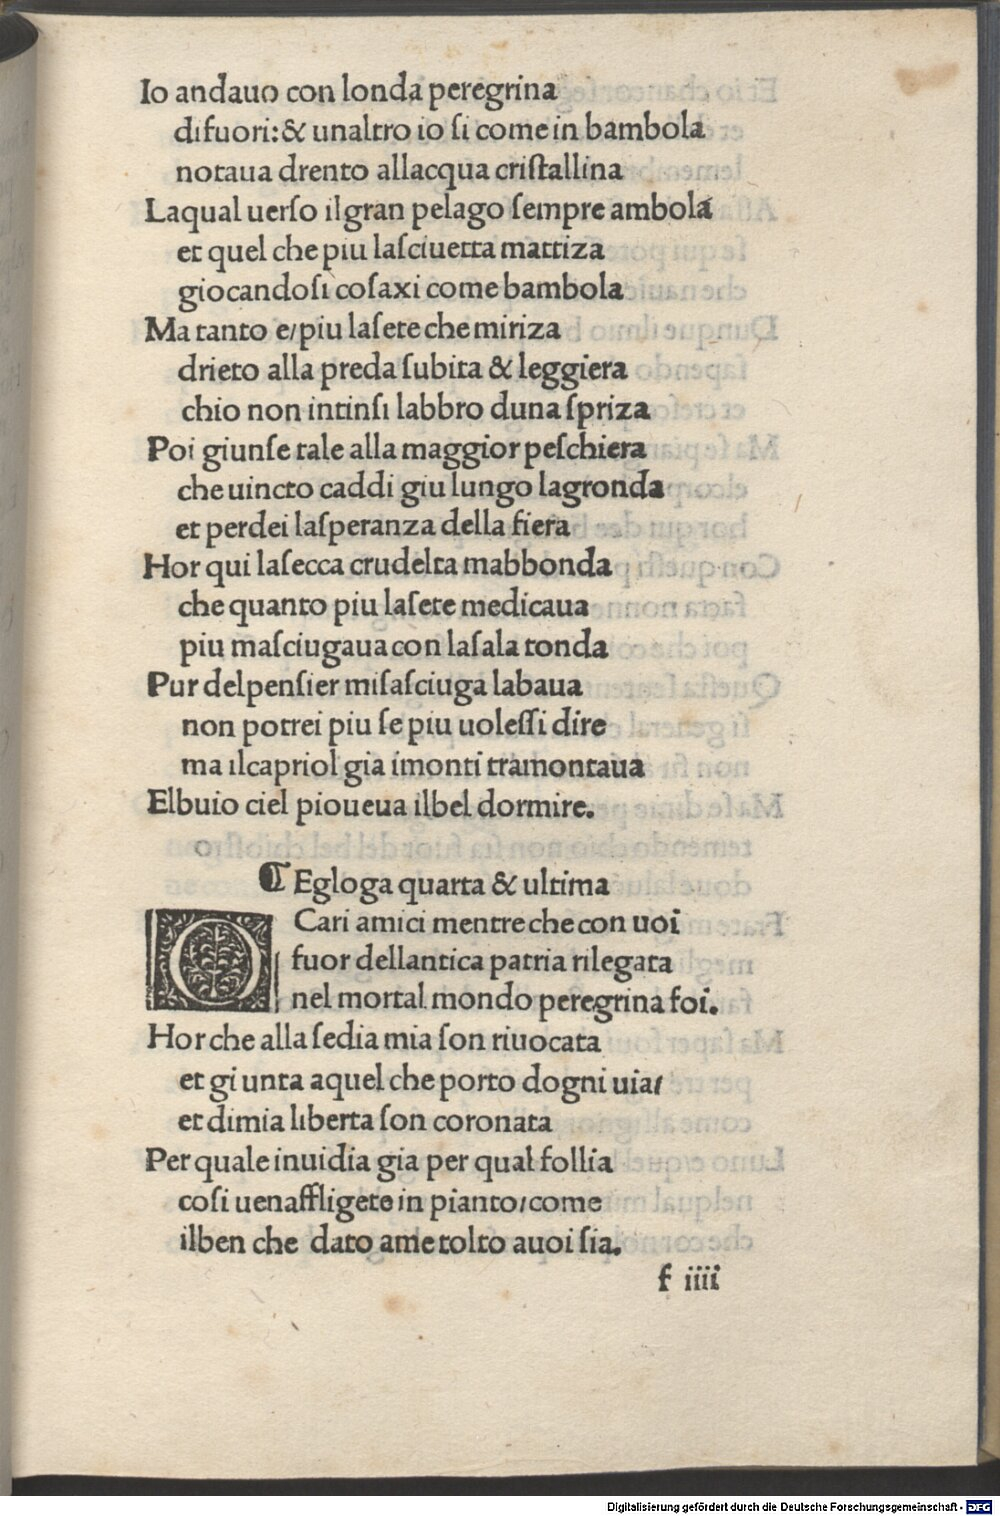 Io andauo con londa peregrina
difuori: & unaltro io ſi come in bambola
notaua drento allacqua criſtallina
Laqual uerſo ilgran pelago ſempre ambola
et quel che piu laſciuetta mattiza
giocandoſi coſaxi come bambola
Ma tanto e/piu laſete che miriza
drieto alla preda ſubita & leggiera
chio non intinſi labbro duna ſpriza
Poi giunſe tale alla maggior peſchiera
che uincto caddi giu lungo lagronda
et perdei laſperanza della fiera
Hor qui laſecca crudelta mabbonda
che quanto piu laſete medicaua
piu maſciugaua con laſala tonda
Pur delpenſier miſaſciuga labaua
non potrei piu ſe piu uoleſſi dire
ma ilcapriol gia imonti tramontaua
Elbuio ciel pioueua ilbel dormire.
¶ Egloga quarta & ultima
O Cari amici mentre che con uoi
fuor dellantica patria rilegata
nel mortal mondo peregrina foi.
Hor che alla ſedia mia ſon riuocata
et giunta aquel che porto dogni uia/
et dimia liberta ſon coronata
Per quale inuidia gia per qual follia
coſi uenaffligete in pianto/come
ilben che dato ame tolto auoi ſia.
f iiii
Digitalisierung gefördert durch die Deutsche Forschungsgemeinschaft - DFG